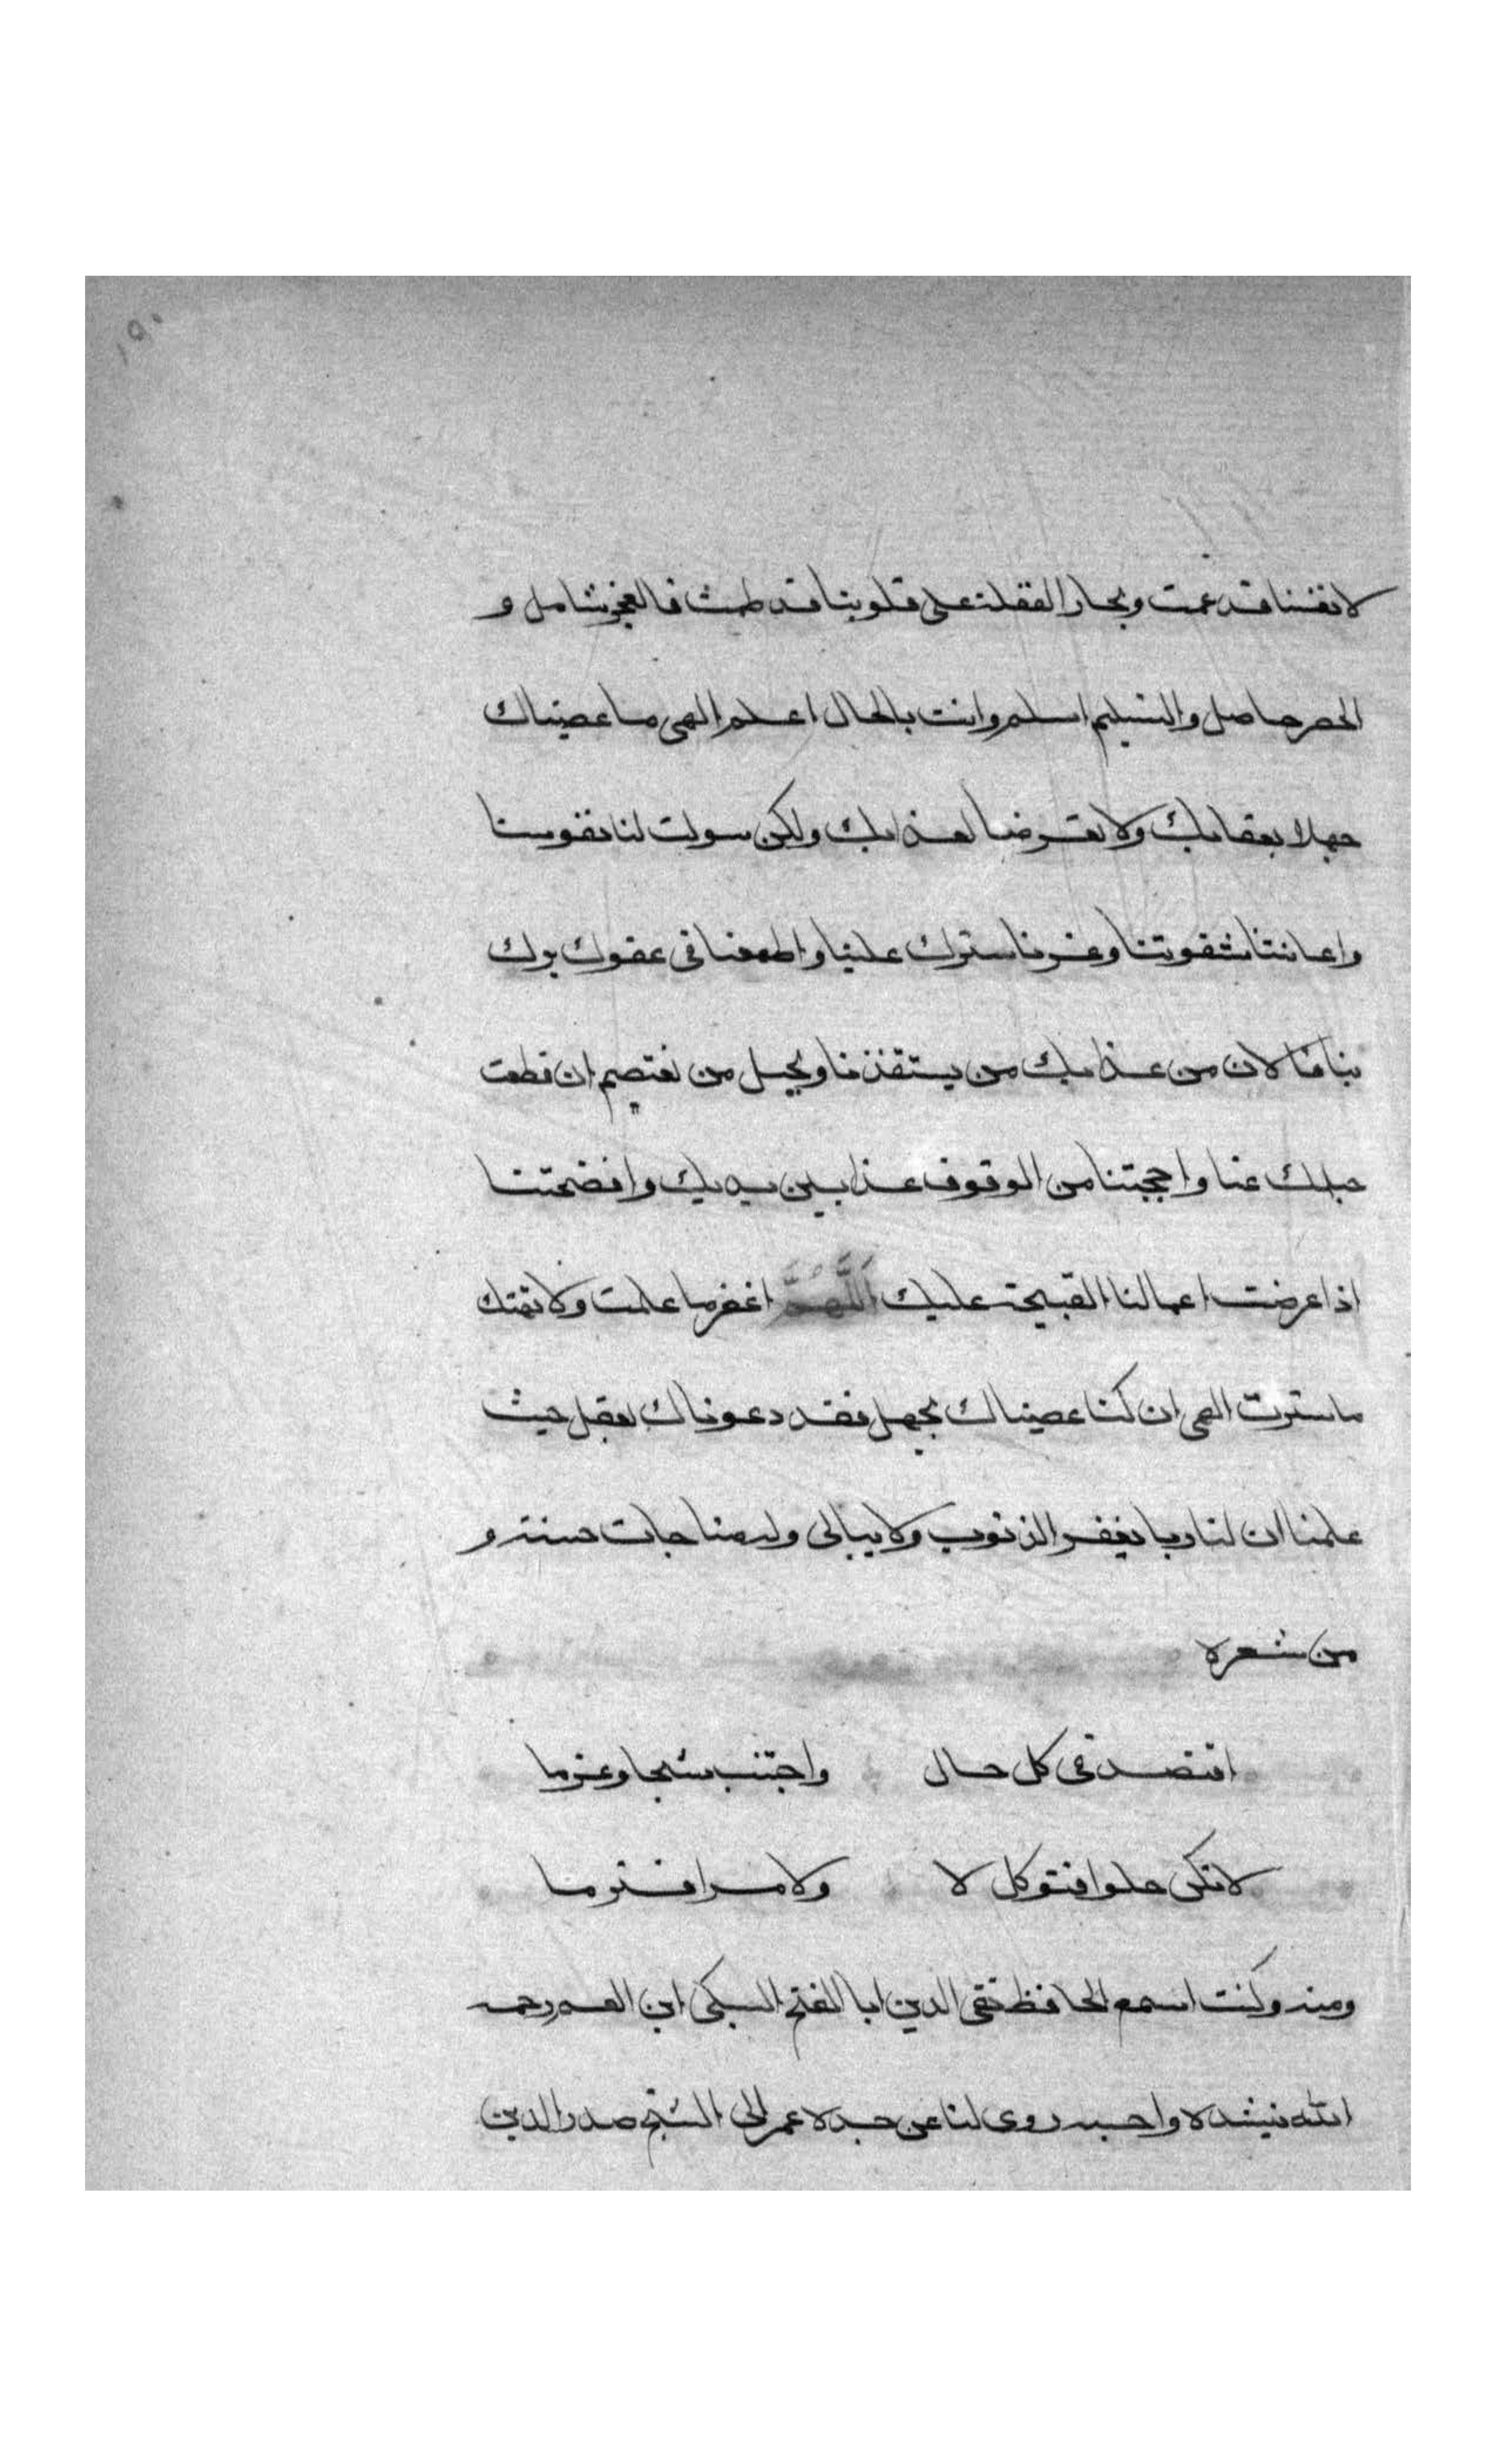 ١٩٠
لانفسنا قد عمت وبحار الغفلة على قلوبنا قد طمت فالعجز شامل و
الحصر حاصل والتسليم اسلم وانت بالحال اعلم الهى ما عصيناك
جهلا بعقابك ولا تعرضا لعذابك ولكن سولت لنا نفوسنا
واعانتنا شقوتنا وغرنا سترك علينا واطمعنا فى عفوك برك
بنا فالان من عذابك من يستنقذنا وبحبل من نعتصم ان قطعت
حبلك عنا واخجلتنا من الوقوف غدا بين يديك وافضحتنا
اذا عرضت اعمالنا القبيحة عليك اَللَّهُمَّ اغفر ما علمت ولا تهتك
ما سترت الهى ان كنا عصيناك بجهل فقد دعوناك بعقل حيث
علمنا ان لنا ربا يغفر الذنوب ولا يبالى وله مناجات حسنة و
من شعره
اقتصد فى كل حال واجتنب شحا وغرما
لا تكن حلوا فتوكل لا ولا مرا فترما
ومنه وكنت اسمع الحافظ تقى الدين ابا الفتح السبكى ابن العم رحمه
الله ينشده واحسبه روى لنا عن جده عم ابى الشيخ صدر الدين